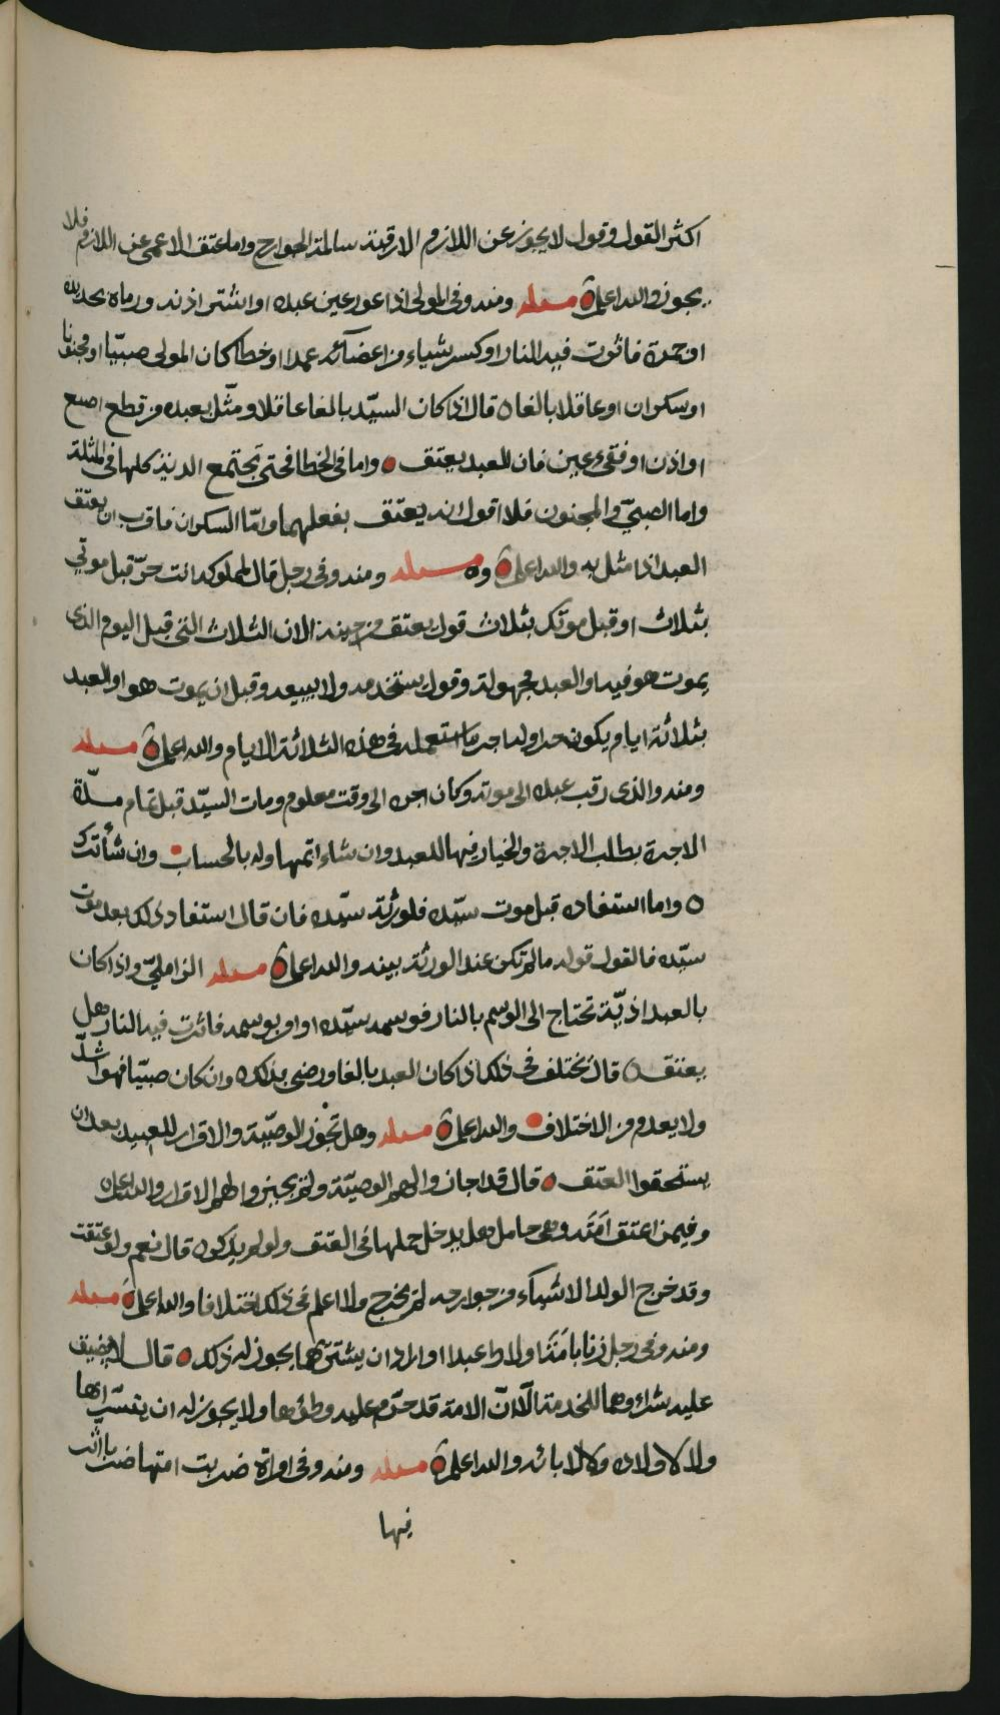 اكثر القول وقول لا يجوز عن اللازم الا رقبة سالمة الجوارح واما عتق الاعمى عن اللازم فلا
يجوز والله اعلم ه مسئلة ومنه وفي المولى اذا عور عين عبده او انشتر اذنه ورماه بحديده
او جمرة فاثرت فيه النار او كسر شياء من اعضآئه عمدا او خطا كان المولى صبيّا او مجنونا
او سكران او عاقلا بالغا ه قال اذا كان السيّد بالغا عاقلا ومثّل بعبده من قطع اصبع
او اذن او فقىء عين فان العبد يعتق ه واما في الخطا فحتى تجتمع الدية كلها في المثلة
واما الصبيّ والمجنون فلا اقول انه يعتق بفعلهما وامّا السكران فاقرب ان يعتق
العبد اذا مثل به والله اعلم ه وه مسئلة ومنه وفي رجل قال لمملوكه انت حرّ قبل موتي
بثلاث او قبل موتك بثلاث قول يعتق من حينه الان الثلاث التي قبل اليوم الذي
يموت هو فيه او العبد مجهولة وقول يستخدمه ولا يبيعه وقبل ان يموت هو او العبد
بثلاثة ايام يكون حرا وله اجر ما استعمله في هذه الثلاثة الايام والله اعلم ه مسئلة
ومنه والذي رقب عبده الى موته وكان اجره الى وقت معلوم ومات السيّد قبل تمام مدّة
الاجرة بطلب الاجرة والخيار فيها للعبد وان شاء اتمها وله بالحساب وان شأ ترك
ه واما استفاده قبل موت سيّده فلورثة سيّده فان قال استفاد ذلك بعد موت
سيّده فالقول قوله ما لم تكن عند الورثة بينه والله اعلم ه مسئلة الزامليّ واذا كان
بالعبد اذيّة تحتاج الى الوسم بالنار فوسمه سيّده او امر بوسمه فاثرت فيه النار هل
يعتق ه قال يختلف في ذلك اذا كان العبد بالغا ورضى بذلك وان كان صبيّا فهو اشدّ
ولا يعدم من الاختلاف والله اعلم ه مسئلة وهل تجوز الوصيّة والاقرار للعبيد بعد ان
يستحقوا العتق ه قال قد اجازوا لهم الوصيّة ولم يجيزوا لهم الاقرار والله اعلم ه
وفيمن اعتق امَته وهى حامل هل يدخل حملها في العتق ولو لم يذكره قال نعم ولو عتقت
وقد خرج الولد الا شيآء من جوارحه لم يخرج ولا اعلم في ذلك اختلافا والله اعلم ه مسئلة
ومنه وفي رجل زنا بامَته اولاط عبدا او اراد ان يشتريهما يجوز له ذلك ه قال لا يضيق
عليه شراؤهما للخدمة الّا انّ الامة قد حرّم عليه وطؤها ولا يجوز له ان يتسرّاها
ولا لاولاده ولا لابائه والله اعلم ه مسئلة ومنه وفي امراة ضربت امتها ضربا اثر
فيها